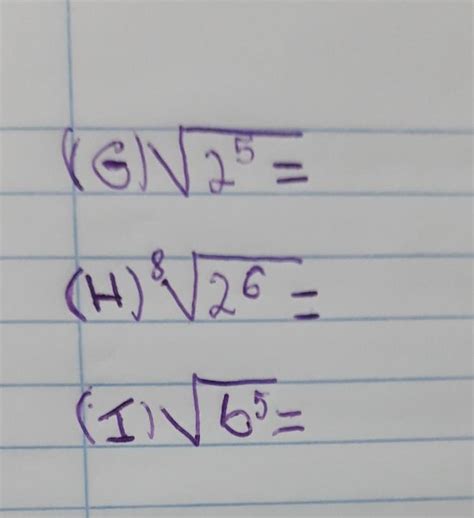 (G) √2⁵ =
(H) ⁸√2⁶ =
(I) √b⁵ =